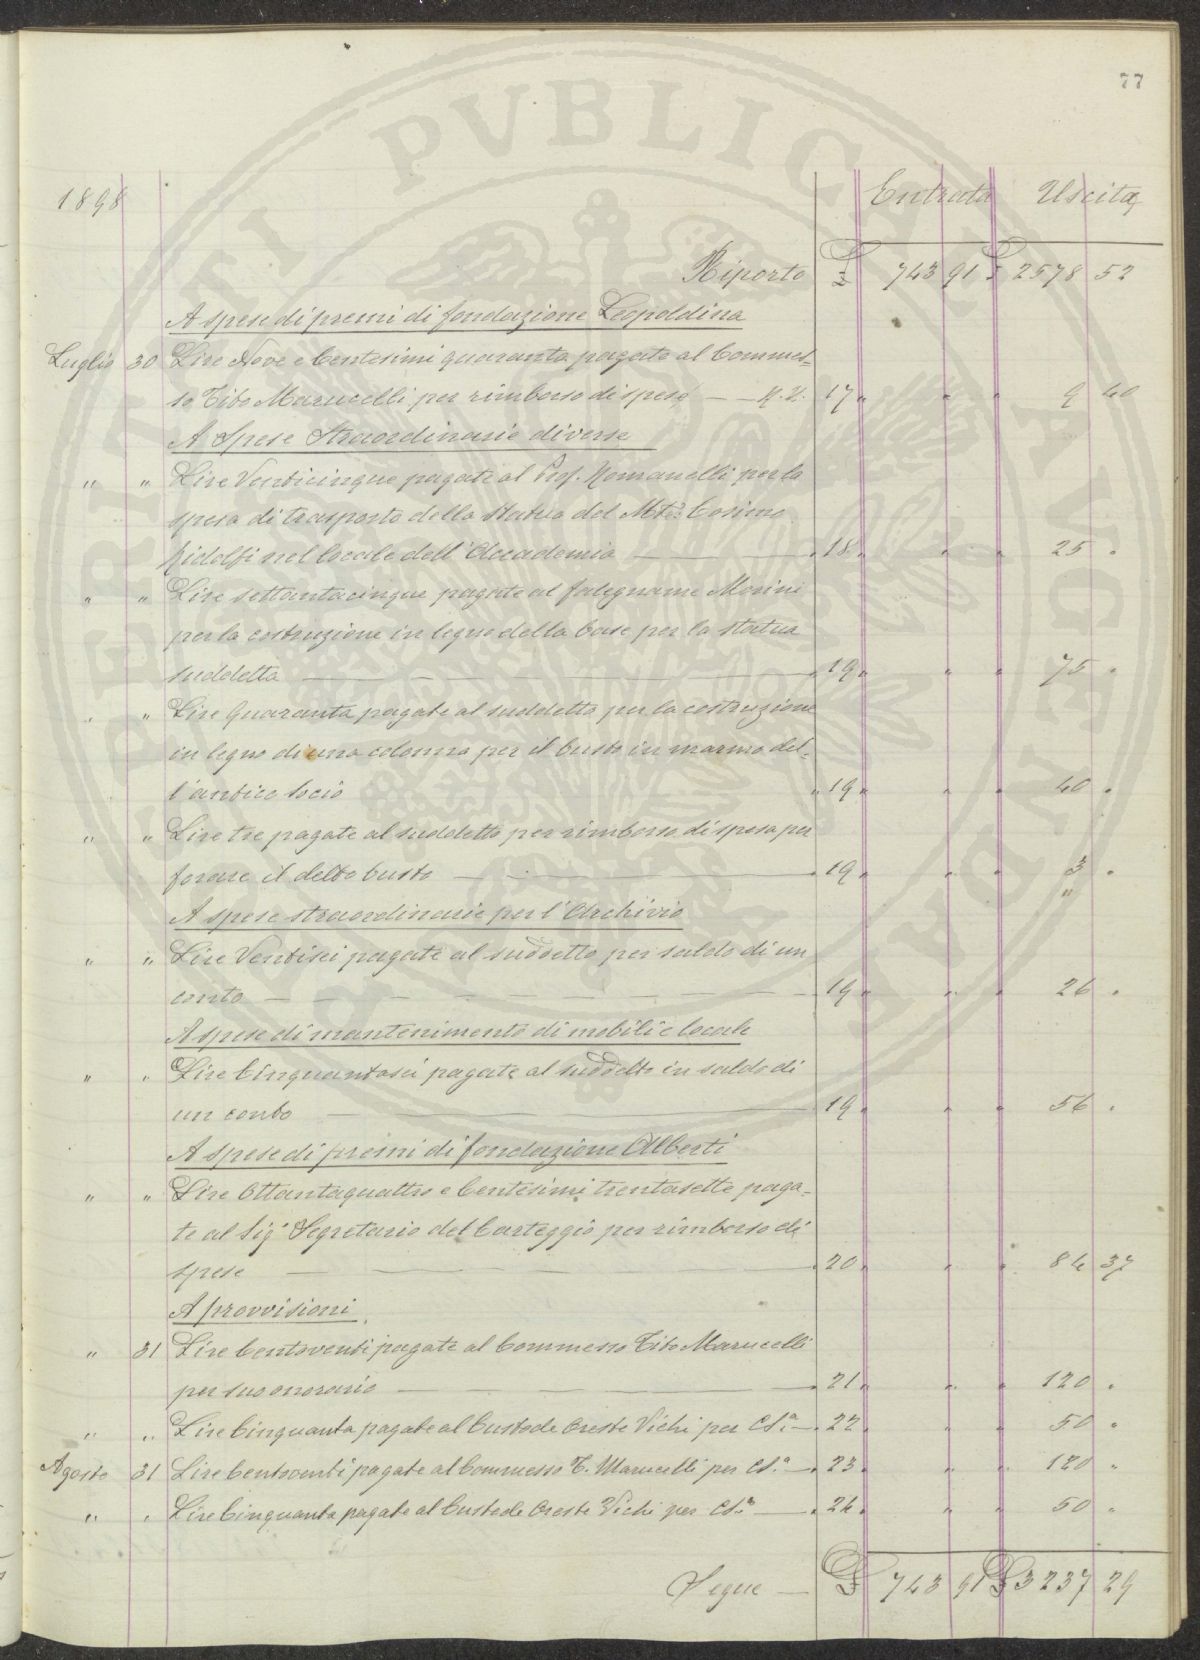 77
1898 Entrata Uscita
Riporto £ 743 91 £ 2578 52
A spese di premi di fondazione Leopoldina
Luglio 30 Lire Nove e Centesimi quaranta pagate al Commes-
so Tito Marucelli per rimborso di spese — N.º 17 " " " 9 40
A Spese Straordinarie diverse
" " Lire Venticinque pagate al Prof. Romanelli per la
spesa di trasporto della statua del Mse. Cosimo
Ridolfi nel locale dell'Accademia — " 18 " " " 25 "
" " Lire settantacinque pagate al falegname Morini
per la costruzione in legno della base per la statua
suddetta — " 19 " " " 75 "
" " Lire Quaranta pagate al suddetto per la costruzione
in legno di una colonna per il busto in marmo del-
l'antico socio " 19 " " " 40 "
" " Lire tre pagate al suddetto per rimborso di spesa per
forare il detto busto — " 19 " " " 3 "
A spese straordinarie per l'Archivio
" " Lire Ventisei pagate al suddetto per saldo di un
conto — " 19 " " " 26 "
A spese di mantenimento di mobili e locale
" " Lire Cinquantasei pagate al suddetto in saldo di
un conto — " 19 " " " 56 "
A spese di premi di fondazione Alberti
" " Lire Ottantaquattro e Centesimi trentasette paga-
te al Sig. Segretario del Carteggio per rimborso di
spese — " 20 " " " 84 37
A provvisioni
" 31 Lire Centoventi pagate al Commesso Tito Marucelli
per suo onorario — " 21 " " " 120 "
" " Lire Cinquanta pagate al Custode Oreste Vichi per Cs.ª — " 22 " " " 50 "
Agosto 31 Lire Centoventi pagate al Commesso T. Marucelli per Cs.ª — " 23 " " " 120 "
" " Lire Cinquanta pagate al Custode Oreste Vichi per Cs.ª — " 24 " " " 50 "
Segue — £ 743 91 £ 3237 29